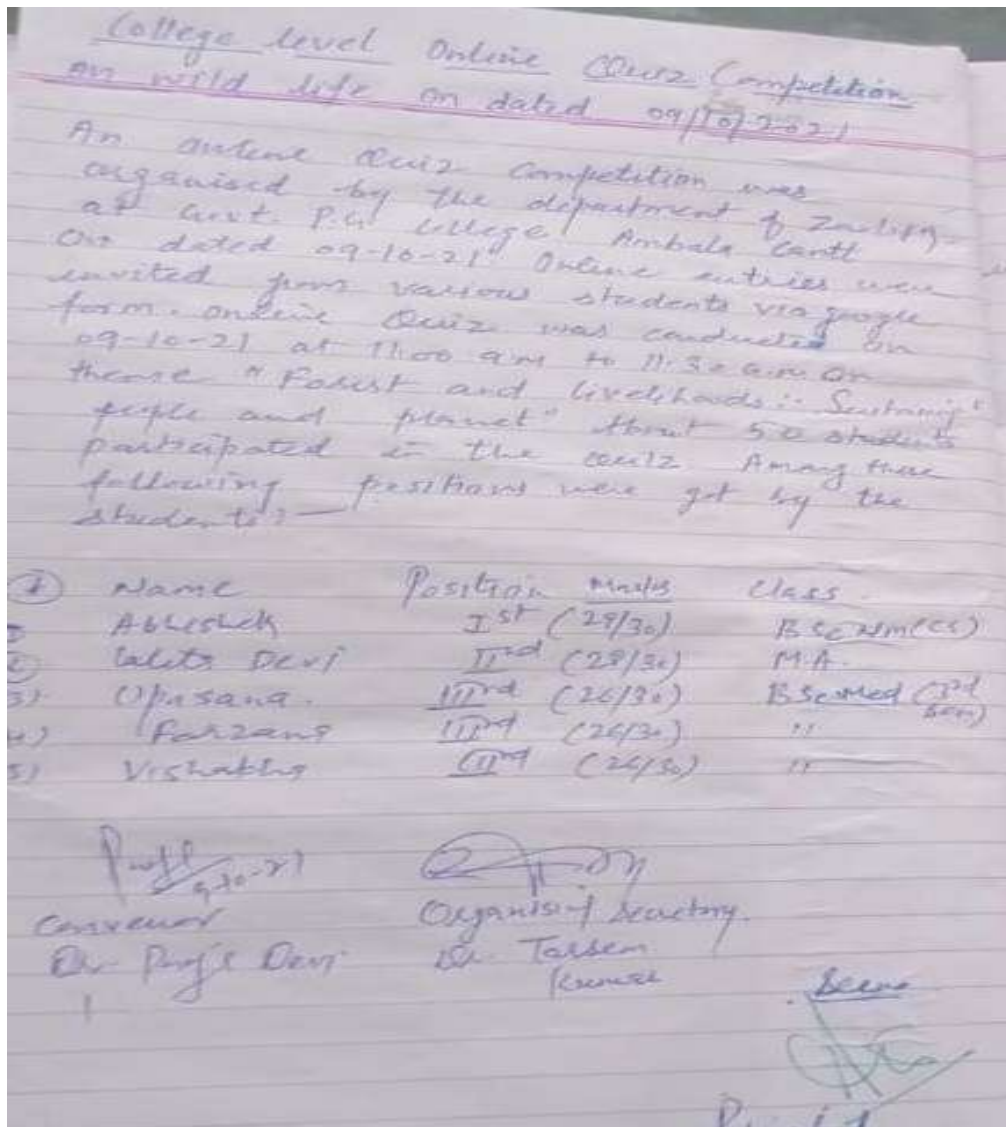 College level Online Quiz Competition
on wild life on dated 09/10/2021
An online Quiz Competition was
organised by the department of Zoology
at Govt. P.G. College Ambala Cantt
On dated 09-10-21. Online entries were
invited from various students via google
form. online Quiz was conducted on
09-10-21 at 11.00 am to 11.30 a.m. on
theme "Forest and livelihoods: Sustaining
people and planet" About 50 students
participated in the quiz Among these
following positions were got by the
students:—
Name Position Marks Class
1 Abhishek Ist (29/30) BSc NM(CS)
2 Lalita Devi IInd (28/30) M.A.
3) Upasana. IIIrd (26/30) BSc Med (IIIrd Sem)
4) Farzana IIIrd (26/30) "
5) Vishakha IIIrd (26/30) "
9-10-21
Convenor Organising Secretary.
Dr. Devi Dr. Tarsem
Kumar
Seen